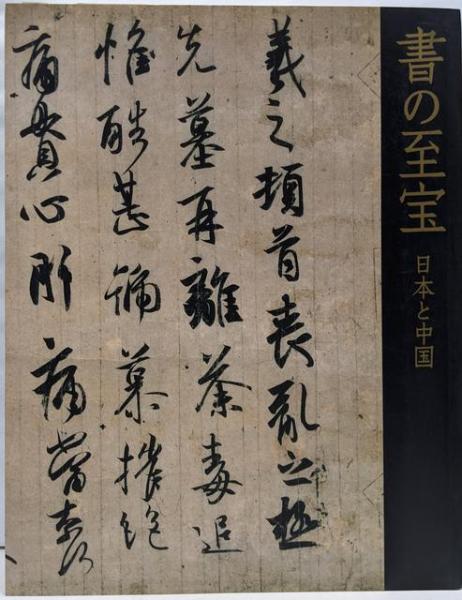 書の至宝
日本と中国
羲之頓首喪亂之極
先墓再離荼毒追
惟酷甚號慕摧絶
痛貫心肝痛當奈何